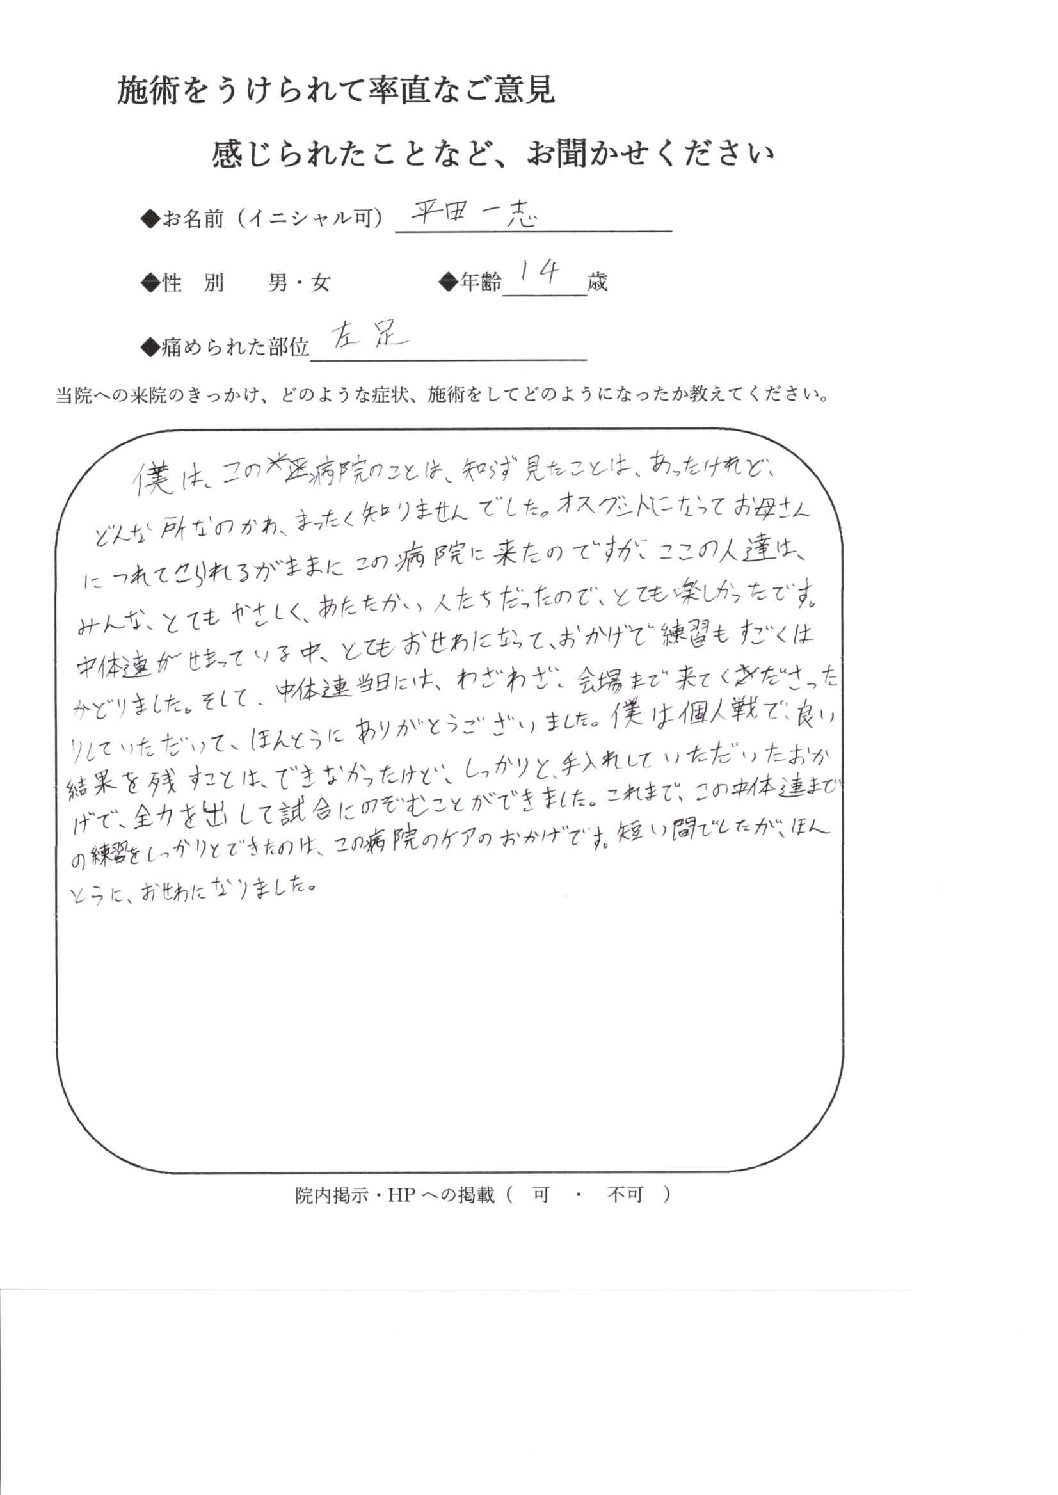 施術をうけられて率直なご意見
感じられたことなど、お聞かせください
◆お名前（イニシャル可） 平田一志
◆性 別 男・女 ◆年齢 14 歳
◆痛められた部位 左足
当院への来院のきっかけ、どのような症状、施術をしてどのようになったか教えてください。
僕は、この病院のことは、知らず見たことは、あったけれど、
どんな所なのかわ、まったく知りませんでした。オスグットになってお母さん
につれてこられるがままにこの病院に来たのですが、ここの人達は、
みんな、とてもやさしく、あたたかい人たちだったので、とても楽しかったです。
中体連がせまっている中、とてもおせわになって、おかげで練習もすごくは
かどりました。そして、中体連当日には、わざわざ、会場まで来てくださった
りしていただいて、ほんとうにありがとうございました。僕は個人戦で、良い
結果を残すことは、できなかったけど、しっかりと、手入れしていただいたおか
げで、全力を出して試合にのぞむことができました。これまで、この中体連まで
の練習をしっかりとできたのは、この病院のケアのおかげです。短い間でしたが、ほん
とうに、おせわになりました。
院内掲示・HPへの掲載（ 可 ・ 不可 ）